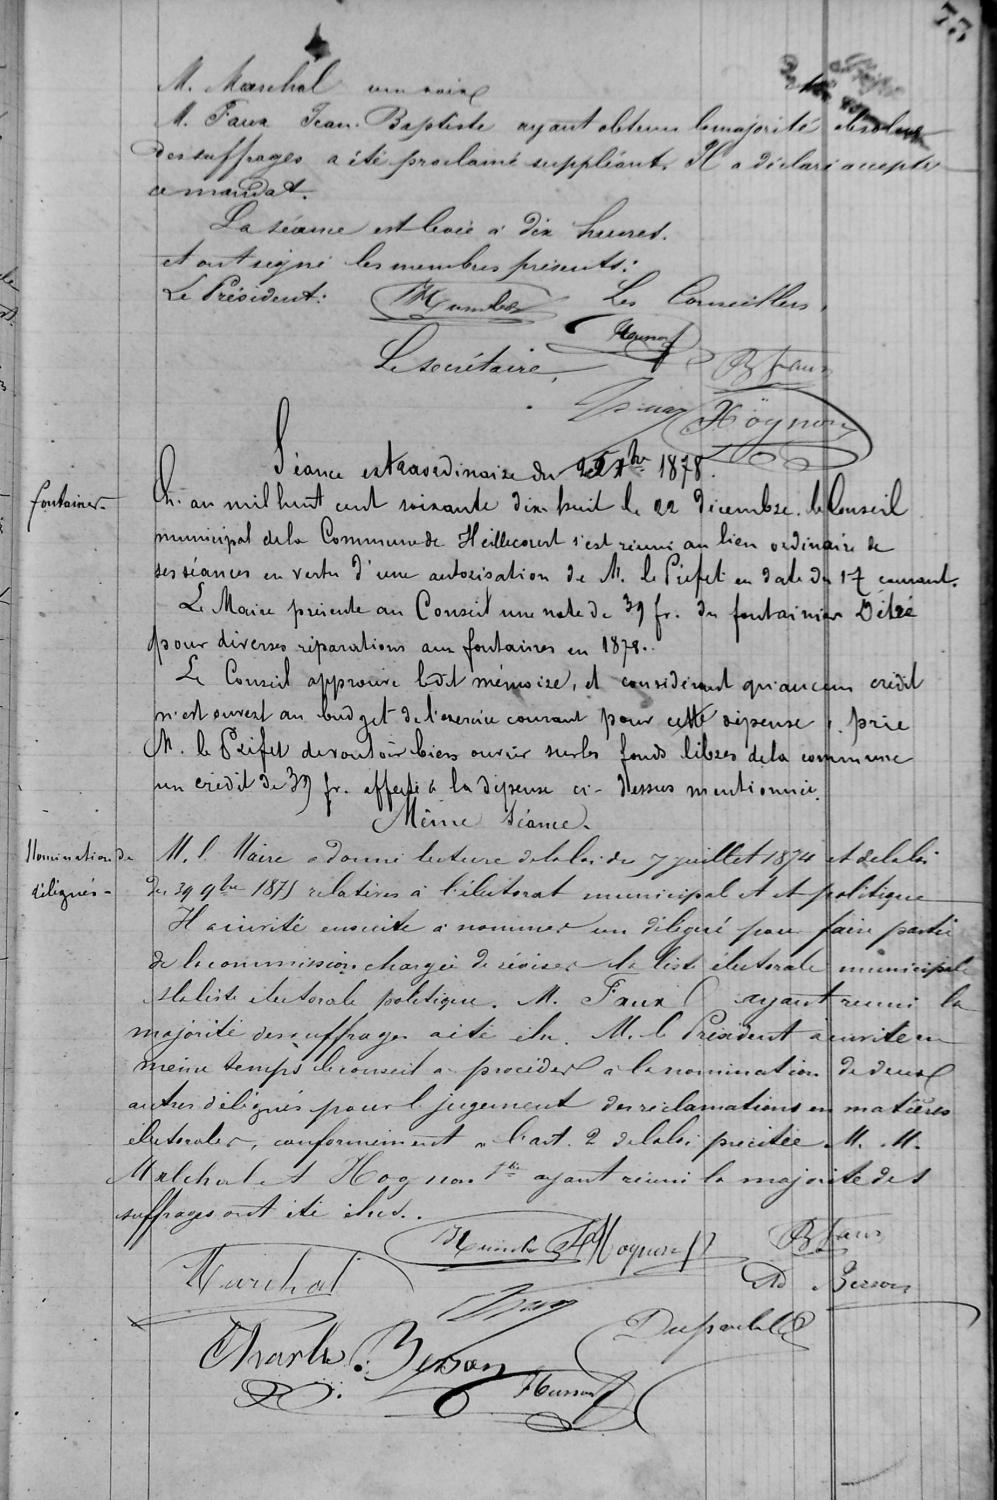 73
M. Marchal une voix
M. Faux Jean-Baptiste ayant obtenu la majorité absolue
des suffrages a été proclamé suppléant. Il a déclaré accepter
ce mandat.
La séance est levée à dix heures.
et ont signé les membres présents:
Le Président: Humbert Les Conseillers,
Husson
Le secrétaire, B Faux
Hognon
Séance extraordinaire du 22 Xbre 1878.
fontaines-
L'an mil huit cent soixante dix-huit le 22 décembre. le Conseil
municipal de la Commune de Heillecourt s'est réuni au lieu ordinaire de
ses séances en vertu d'une autorisation de M. le Préfet en date du 17 courant.
Le Maire présente au Conseil une note de 39 fr. du fontainier Détré
pour diverses réparations aux fontaines en 1878.
Le Conseil approuve ledit mémoire, et considérant qu'aucun crédit
n'est ouvert au budget de l'exercice courant pour cette dépense, prie
M. le Préfet de vouloir bien ouvrir sur les fonds libres de la commune
un crédit de 39 fr. affecté à la dépense ci-dessus mentionnée.
Même Séance.
Nomination de
délégués-
M. l. Maire a donné lecture de la loi du 7 juillet 1874 et de la loi
du 29 9bre 1875 relatives à l'électorat municipal et et politique
Il a invité ensuite à nommer un délégué pour faire partie
de la commission chargée de réviser la liste électorale municipale
et la liste électorale politique. M. Faux ayant réuni la
majorité des suffrages a été élu. M. le Président a invité en
même temps le conseil à procéder à la nomination de deux
autres délégués pour le jugement des réclamations en matières
électorales, conformément à l'art. 2 de la loi précitée. M. M.
Marchal et Hognon ayant réuni la majorité des
suffrages ont été élus.
Humbert Hognon B Faux
Marchal Ad Besson
Charles Besson
Husson